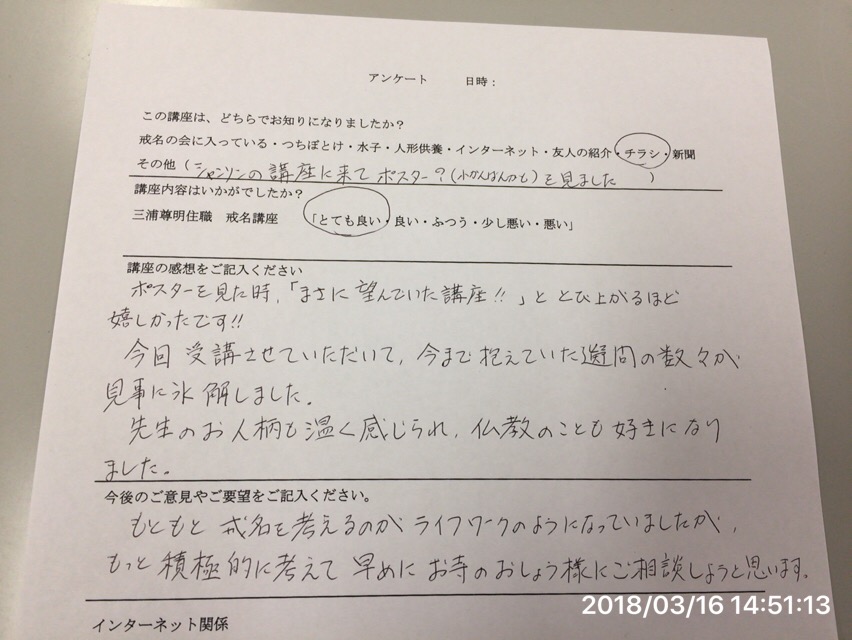 アンケート　日時：
この講座は、どちらでお知りになりましたか？
戒名の会に入っている・つちぼとけ・水子・人形供養・インターネット・友人の紹介・チラシ・新聞
その他（シャンソンの講座に来てポスター？(小かんばんかも)を見ました）
講座内容はいかがでしたか？
三浦尊明住職　戒名講座　「とても良い・良い・ふつう・少し悪い・悪い」
講座の感想をご記入ください
ポスターを見た時，「まさに望んでいた講座!!」ととび上がるほど
嬉しかったです!!
今回受講させていただいて，今まで抱えていた疑問の数々が
見事に氷解しました。
先生のお人柄も温く感じられ，仏教のことも好きになり
ました。
今後のご意見やご要望をご記入ください。
もともと戒名を考えるのがライフワークのようになっていましたが，
もっと積極的に考えて早めにお寺のおしょう様にご相談しようと思います。
インターネット関係
2018/03/16 14:51:13